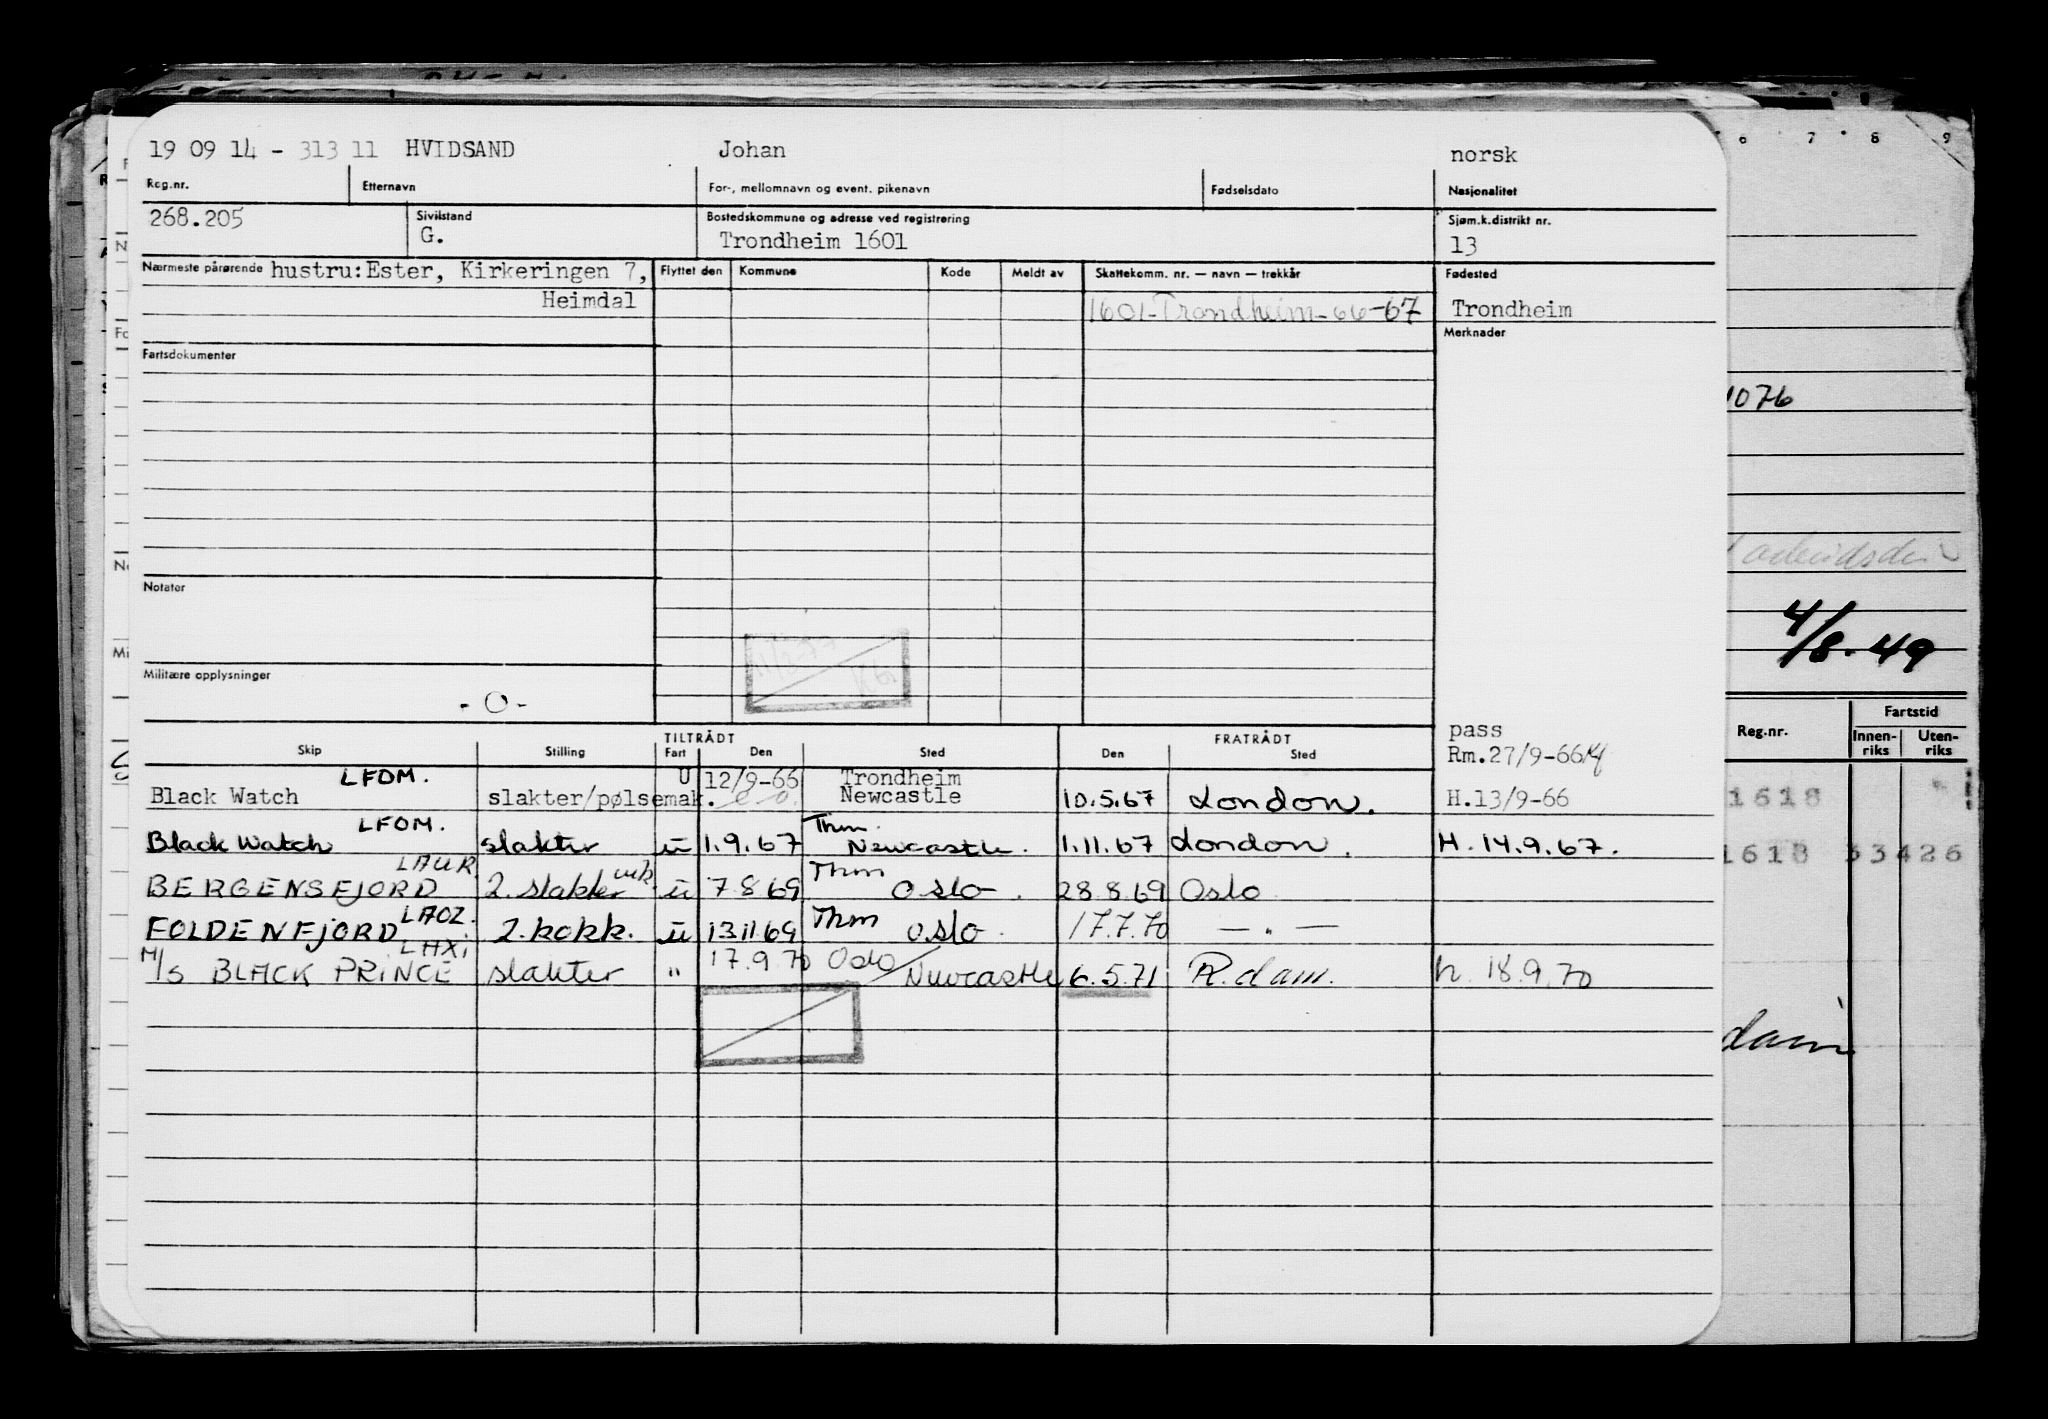 19 09 14 - 313 11 HVIDSAND Johan norsk
Reg.nr. Etternavn For-, mellomnavn og event. pikenavn Fødselsdato Nasjonalitet
268.205 Sivilstand Bostedskommune og adresse ved registrering Sjøm.k.distrikt nr.
G. Trondheim 1601 13
Nærmeste pårørende hustru: Ester, Kirkeringen 7, Flyttet den Kommune Kode Meldt av Skattekomm. nr. — navn — trekkår Fødested
Heimdal 1601-Trondheim-66-67 Trondheim
Merknader
Fartsdokumenter
Notater
Militære opplysninger
- O -
TILTRÅDT FRATRÅDT pass
Skip Stilling Fart Den Sted Den Sted Rm.27/9-66
LFOM. U 12/9-66 Trondheim
Black Watch slakter/pølsemak. Newcastle 10.5.67 London. H.13/9-66
LFOM. Thm.
Black Watch slakter u 1.9.67 Newcastle. 1.11.67 London. H. 14.9.67.
LAUR. Thm
BERGENSFJORD 2. slakter u 7 8 69 Oslo. 28.8.69 Oslo
LAOZ. Thm
FOLDENFJORD 2. kokk. u 13.11.69 Oslo. 17.7.70 — " —
LAXI 17.9.70 Oslo
M/S BLACK PRINCE slakter " Newcastle 6.5.71 R.dam. h. 18.9.70
6 7 8 9
1076
4/8.49
Reg.nr. Fartstid
Innen- Uten-
riks riks
1618
1618 33426